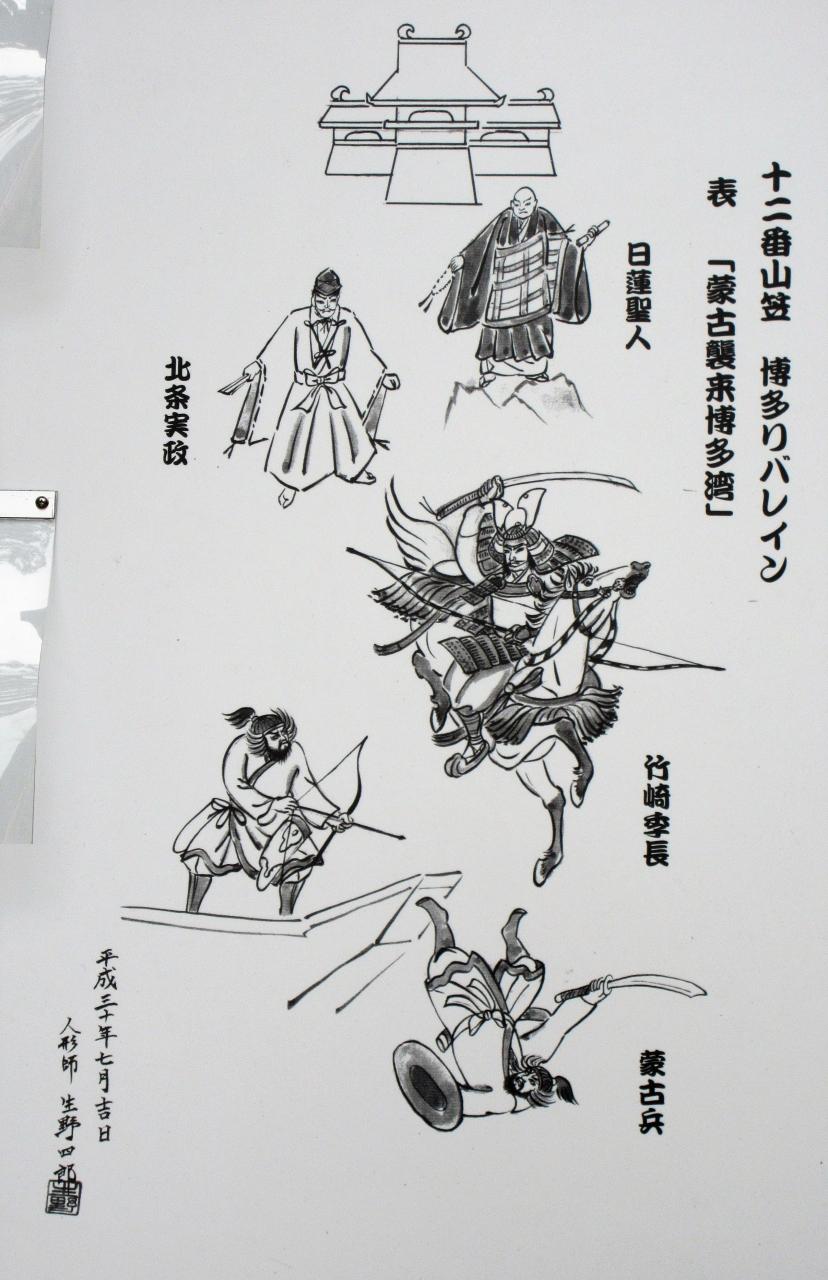 十二番山笠　博多リバレイン
表　「蒙古襲来博多湾」
日蓮聖人
北条実政
竹崎季長
蒙古兵
平成三十年七月吉日
人形師　生野四郎